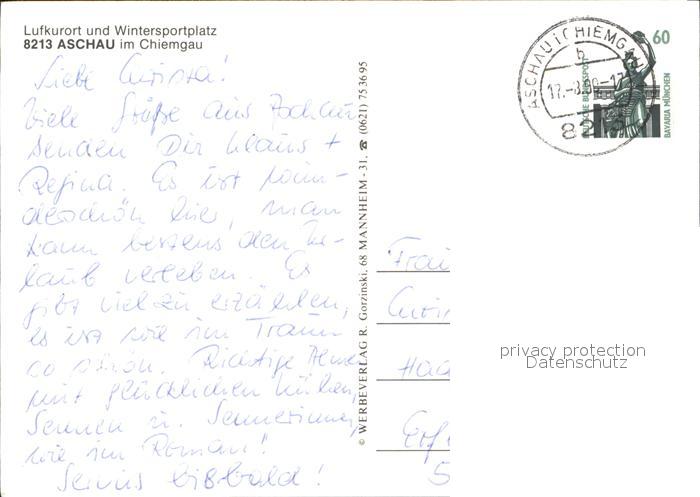 Luftkurort und Wintersportplatz
8213 ASCHAU im Chiemgau
Liebe Christa!
Viele Grüße aus Aschau
senden Dir Klaus +
Regina. Es ist wun-
derschön hier, man
kann bestens den Ur-
laub verleben. Es
gibt viel zu erzählen,
es ist wie im Traum
so schön. Richtige Almen
mit glücklichen Kühen,
Sennen u. Sennerinnen,
wie im Roman!
Servus bis bald!
© WERBEVERLAG R. Gorzinski, 68 MANNHEIM - 31, ☎ (0621) 75 36 95
ASCHAU I CHIEMGAU
b
17.-8.
8213
60
DEUTSCHE BUNDESPOST
BAVARIA MÜNCHEN
Frau
Chris
Haa
Erf
5
privacy protection
Datenschutz